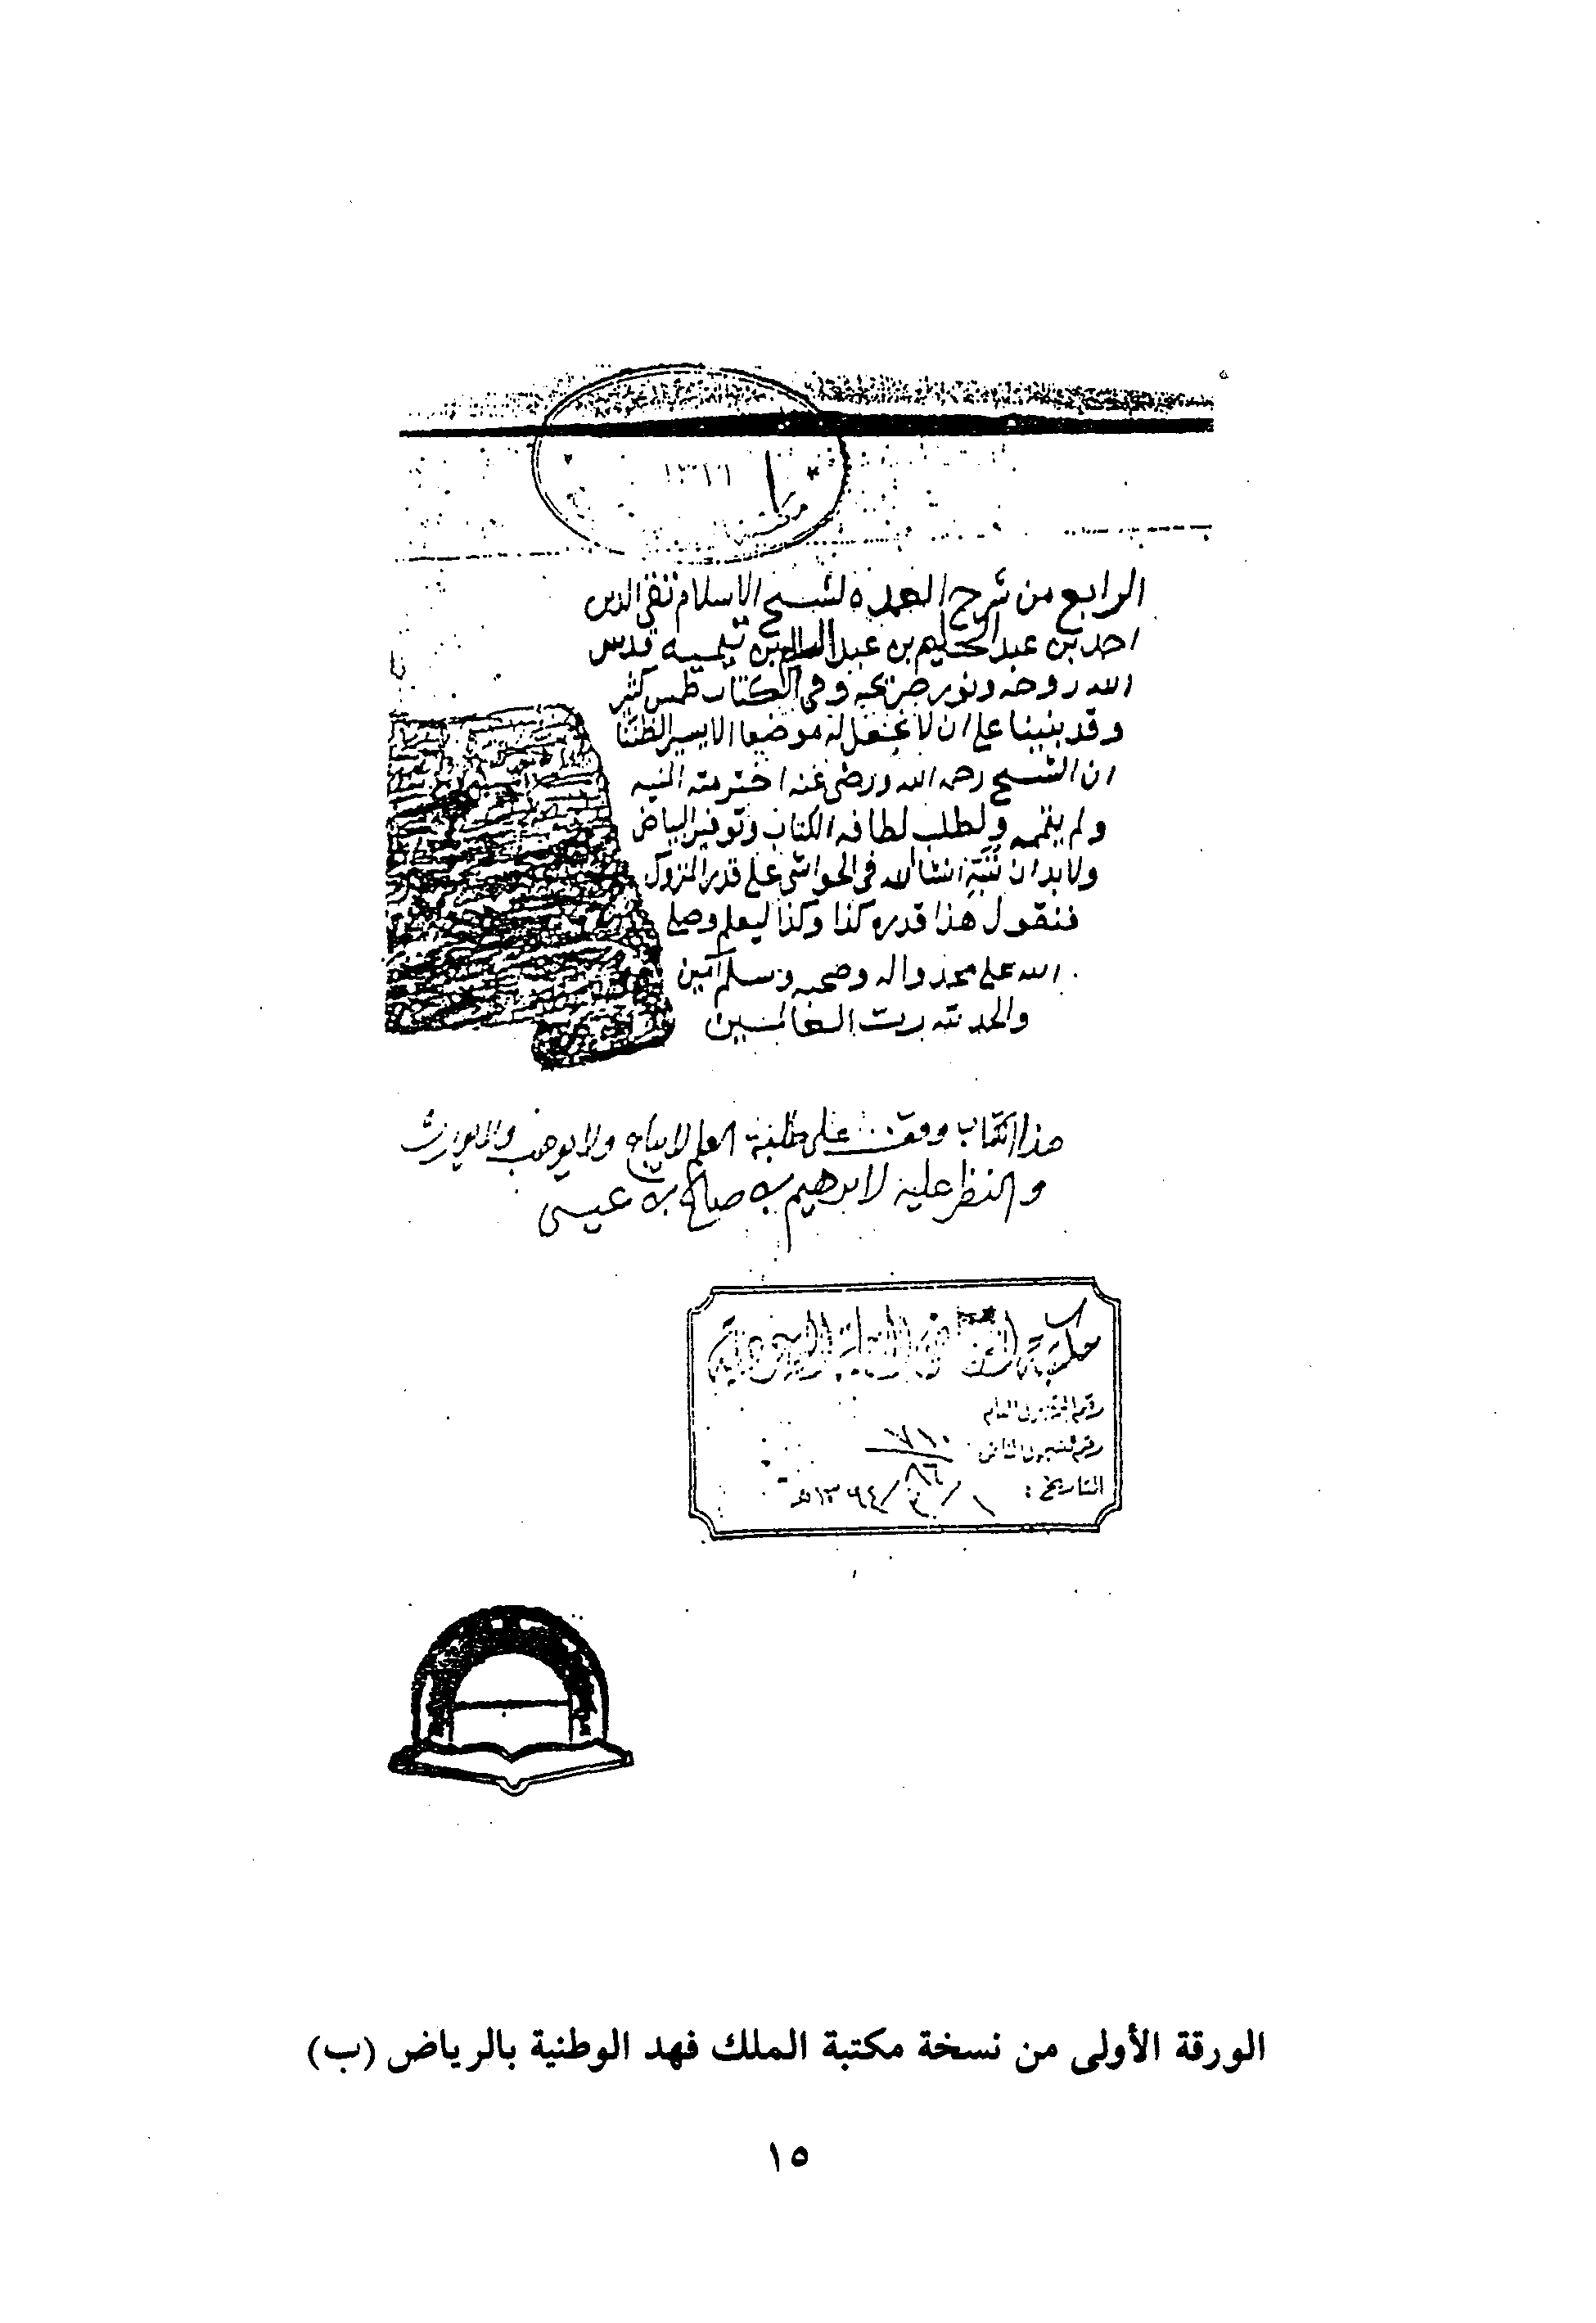 الرابع من شرح العمده لشيخ الاسلام تقي الدين
احمد بن عبد الحليم بن عبد السلام بن تيميه قدس
الله روحه ونور ضريحه وفي الكتاب طمس كثير
وقد بنينا على ان لا نجعل له موضعا الا يسير الظننا
ان الشيخ رحمه الله ورضي عنه اخترمته المنيه
ولم يتممه ولطلب لطافه الكتاب وتوفير البياض
ولا بد ان ننبه انشا الله في الحواشي على قدر المتروك
فنقول هذا قدره كذا وكذا ليعلم وصلى
الله على محمد واله وصحبه وسلم آمين
والحمد لله رب العالمين
هذا الكتاب وقف على طلبة العلم لا يباع ولا يوهب ولا يورث
والنظر عليه لابرهيم بن صالح بن عيسى
مكتبة السعودية
رقم العام
رقم الخاص
التاريخ : ١ / ٣ / ١٣٩٤هـ
الورقة الأولى من نسخة مكتبة الملك فهد الوطنية بالرياض (ب)
١٥